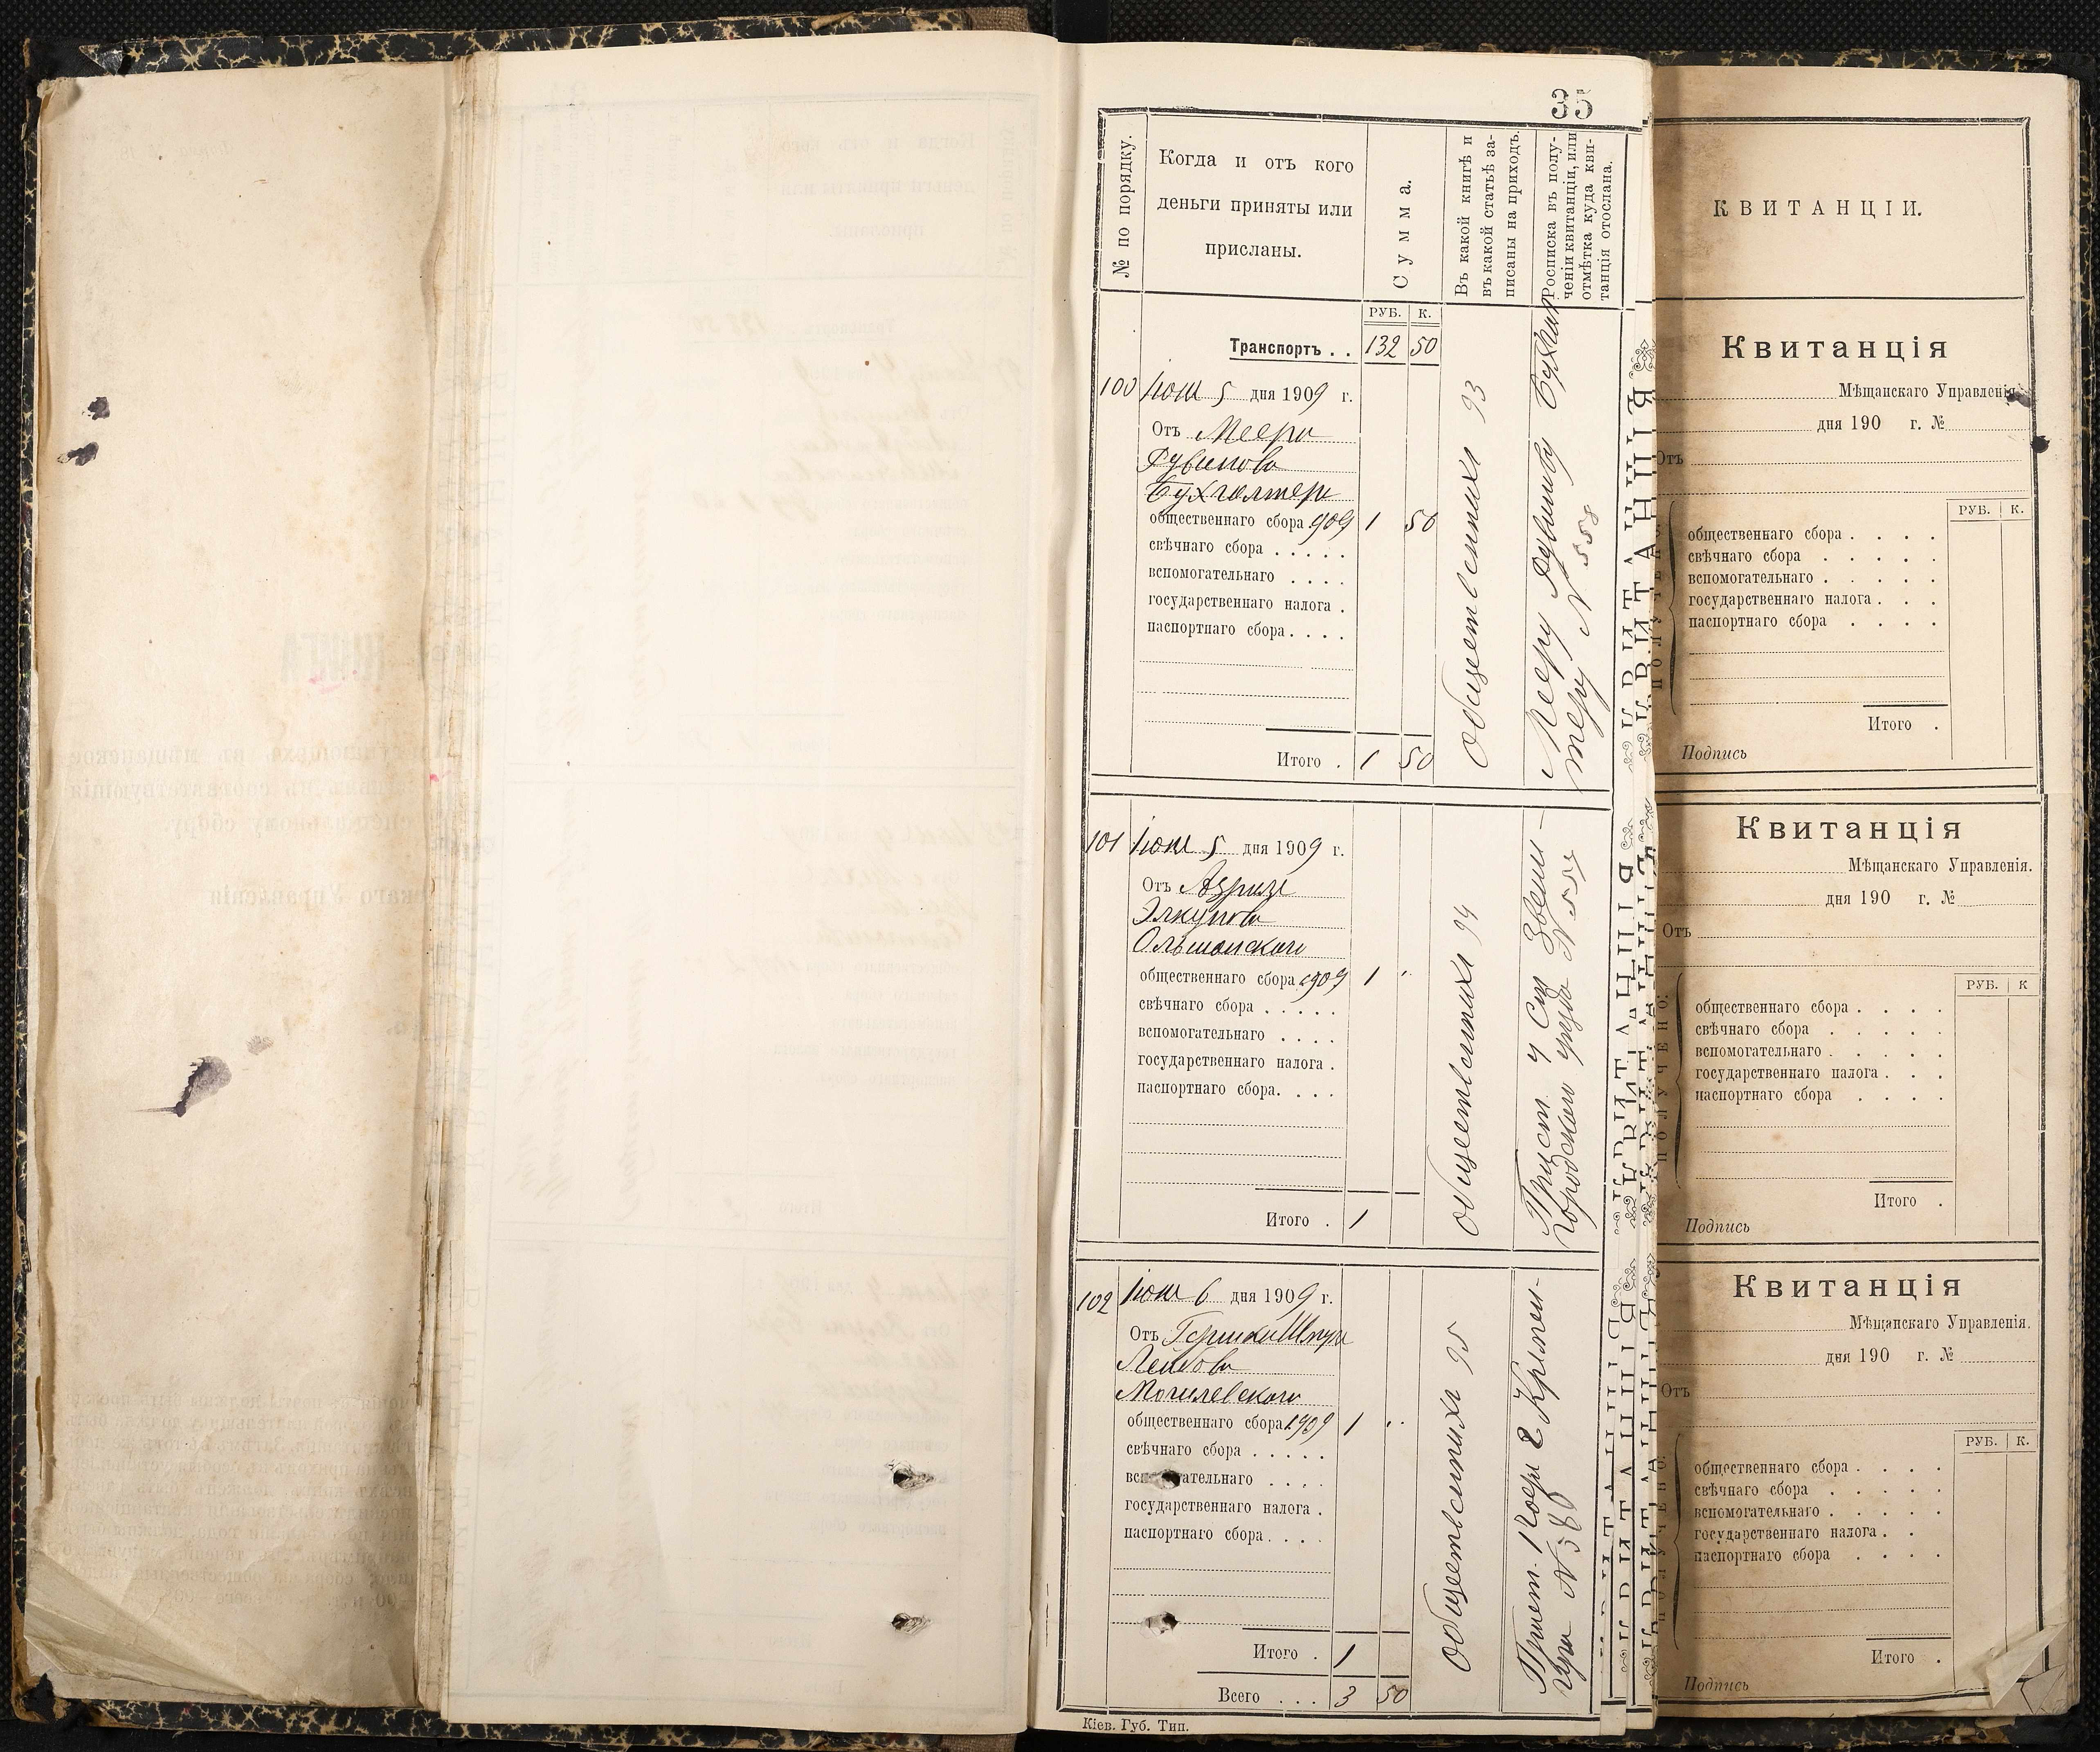 35
№ по порядку.
Когда и отъ кого
деньги приняты или
присланы.
Сумма.
Въ какой книгѣ и
въ какой статьѣ за-
писаны на приходъ.
Росписка въ полу-
ченіи квитанціи, или
отмѣтка куда кви-
танція отослана.
РУБ. К.
Транспортъ . . 132 50
100 Іюля 5 дня 1909 г.
Отъ Меера
Рувинова
Бухгалтера
общественнаго сбора 909 1 50
свѣчнаго сбора . . . . .
вспомогательнаго . . . .
государственнаго налога .
паспортнаго сбора . . . .
Итого . 1 50
Общественныхъ 93
Мееру Рувинову Бухгал
теру № 558
101 Іюля 5 дня 1909 г.
Отъ
Ольшанскаго
общественнаго сбора 1909 1
свѣчнаго сбора . . . . .
вспомогательнаго . . . .
государственнаго налога .
паспортнаго сбора. . . .
Итого . 1
Общественныхъ 94
Прист. 4 Звени-
городскаго уѣзда № 557
102 Іюля 6 дня 1909 г.
Отъ
Лейбова
Могилевскаго
общественнаго сбора 1909 1
свѣчнаго сбора . . . . .
вспомогательнаго . . . .
государственнаго налога .
паспортнаго сбора . . . .
Итого . 1
Всего . . . 3 50
Общественныхъ 95
Кіев. Губ. Тип.
КВИТАНЦІИ.
Квитанція
Мѣщанскаго Управленія
дня 190 г. №
Отъ
РУБ. К.
общественнаго сбора . . . .
свѣчнаго сбора . . . . .
вспомогательнаго . . . . .
государственнаго налога . . .
паспортнаго сбора . . . .
Итого .
Подпись
Квитанція
Мѣщанскаго Управленія.
дня 190 г. №
Отъ
РУБ. К
общественнаго сбора . . . .
свѣчнаго сбора . . . . .
вспомогательнаго . . . . .
государственнаго налога . . .
паспортнаго сбора . . . .
Итого .
Подпись
Квитанція
Мѣщанскаго Управленія.
дня 190 г. №
Отъ
РУБ. К.
общественнаго сбора . . . .
свѣчнаго сбора . . . . .
вспомогательнаго . . . . .
государственнаго налога . .
паспортнаго сбора . . . .
Итого .
Подпись